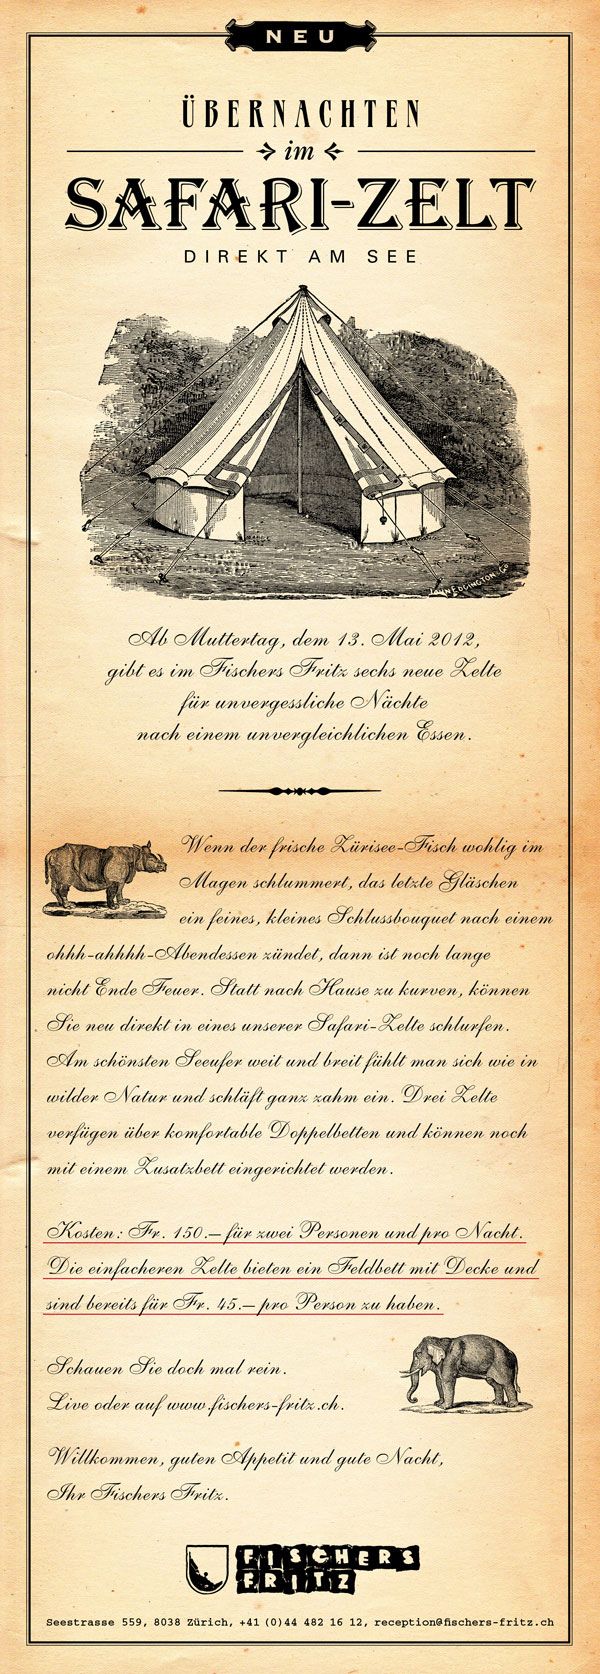 NEU
ÜBERNACHTEN
im
SAFARI-ZELT
DIREKT AM SEE
Ab Muttertag, dem 13. Mai 2012,
gibt es im Fischers Fritz sechs neue Zelte
für unvergessliche Nächte
nach einem unvergleichlichen Essen.
Wenn der frische Zürisee-Fisch wohlig im
Magen schlummert, das letzte Gläschen
ein feines, kleines Schlussbouquet nach einem
ohhh-ahhhh-Abendessen zündet, dann ist noch lange
nicht Ende Feuer. Statt nach Hause zu kurven, können
Sie neu direkt in eines unserer Safari-Zelte schlurfen.
Am schönsten Seeufer weit und breit fühlt man sich wie in
wilder Natur und schläft ganz zahm ein. Drei Zelte
verfügen über komfortable Doppelbetten und können noch
mit einem Zusatzbett eingerichtet werden.
Kosten: Fr. 150.– für zwei Personen und pro Nacht.
Die einfacheren Zelte bieten ein Feldbett mit Decke und
sind bereits für Fr. 45.– pro Person zu haben.
Schauen Sie doch mal rein.
Live oder auf www.fischers-fritz.ch.
Willkommen, guten Appetit und gute Nacht,
Ihr Fischers Fritz.
FISCHERS
FRITZ
Seestrasse 559, 8038 Zürich, +41 (0)44 482 16 12, reception@fischers-fritz.ch